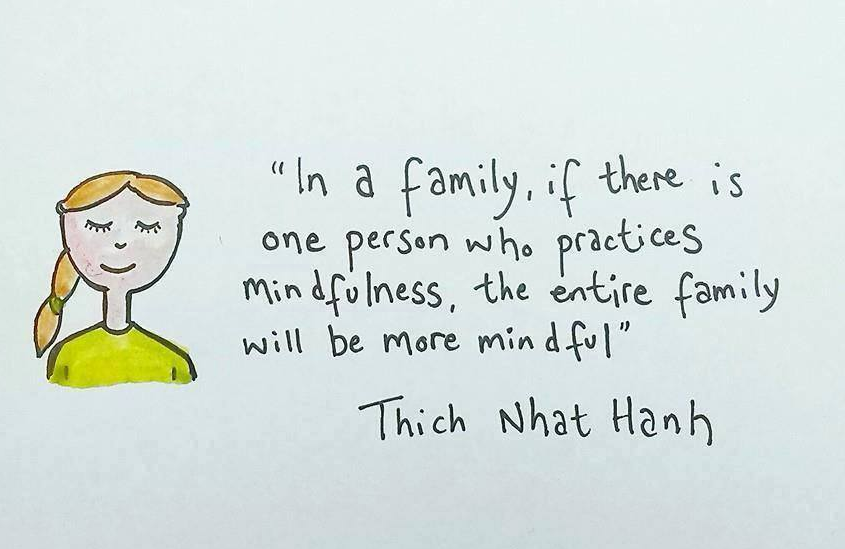 "In a family, if there is
one person who practices
mindfulness, the entire family
will be more mindful"
Thich Nhat Hanh